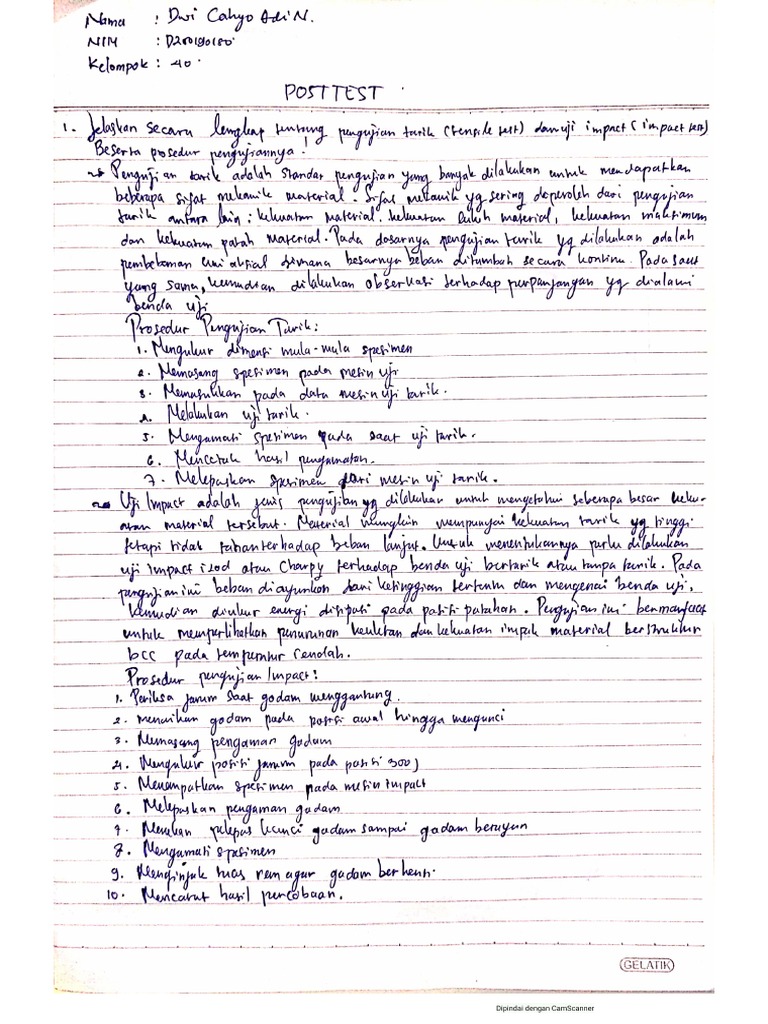 Nama : Dwi Cahyo Adi N.
NIM : D200190180
Kelompok : 40
POSTTEST
1. Jelaskan secara lengkap tentang pengujian tarik (tensile test) dan uji impact (impact test)
Beserta prosedur pengujiannya!
Pengujian tarik adalah standar pengujian yang banyak dilakukan untuk mendapatkan
beberapa sifat mekanik material. Sifat mekanik yg sering diperoleh dari pengujian
tarik antara lain : kekuatan material. kekuatan luluh material, kekuatan maksimum
dan kekuatan patah material. Pada dasarnya pengujian tarik yg dilakukan adalah
pembebanan uniaksial dimana besarnya beban ditambah secara kontinu. Pada saat
yang sama, kemudian dilakukan observasi terhadap perpanjangan yg dialami
benda uji
Prosedur Pengujian Tarik :
1. Mengukur dimensi mula-mula spesimen
2. Memasang spesimen pada mesin uji
3. Memasukkan pada data mesin uji tarik.
4. Melakukan uji tarik.
5. Mengamati spesimen pada saat uji tarik.
6. Mencetak hasil pengamatan.
7. Melepaskan spesimen dari mesin uji tarik.
Uji Impact adalah jenis pengujian yg dilakukan untuk mengetahui seberapa besar keku-
atan material tersebut. Material mungkin mempunyai kekuatan tarik yg tinggi
tetapi tidak tahan terhadap beban lanjut. Untuk menentukannya perlu dilakukan
uji impact izod atau Charpy terhadap benda uji bertarik atau tanpa tarik. Pada
pengujian ini beban diayunkan dari ketinggian tertentu dan mengenai benda uji,
kemudian diukur energi disipasi pada patahan. Pengujian ini bermanfaat
untuk memperlihatkan penurunan keuletan dan kekuatan impak material berstruktur
bcc pada temperatur rendah.
Prosedur pengujian Impact :
1. Periksa jarum saat godam menggantung.
2. menaikan godam pada posisi awal hingga mengunci
3. Memasang pengaman godam
4. Mengukur posisi jarum pada posisi 300 J
5. Menempatkan spesimen pada mesin impact
6. Melepaskan pengaman godam
7. Menekan pelepas kunci godam sampai godam berayun
7. Mengamati spesimen
9. Menginjak tuas rem agar godam berhenti.
10. Mencatat hasil percobaan.
GELATIK
Dipindai dengan CamScanner